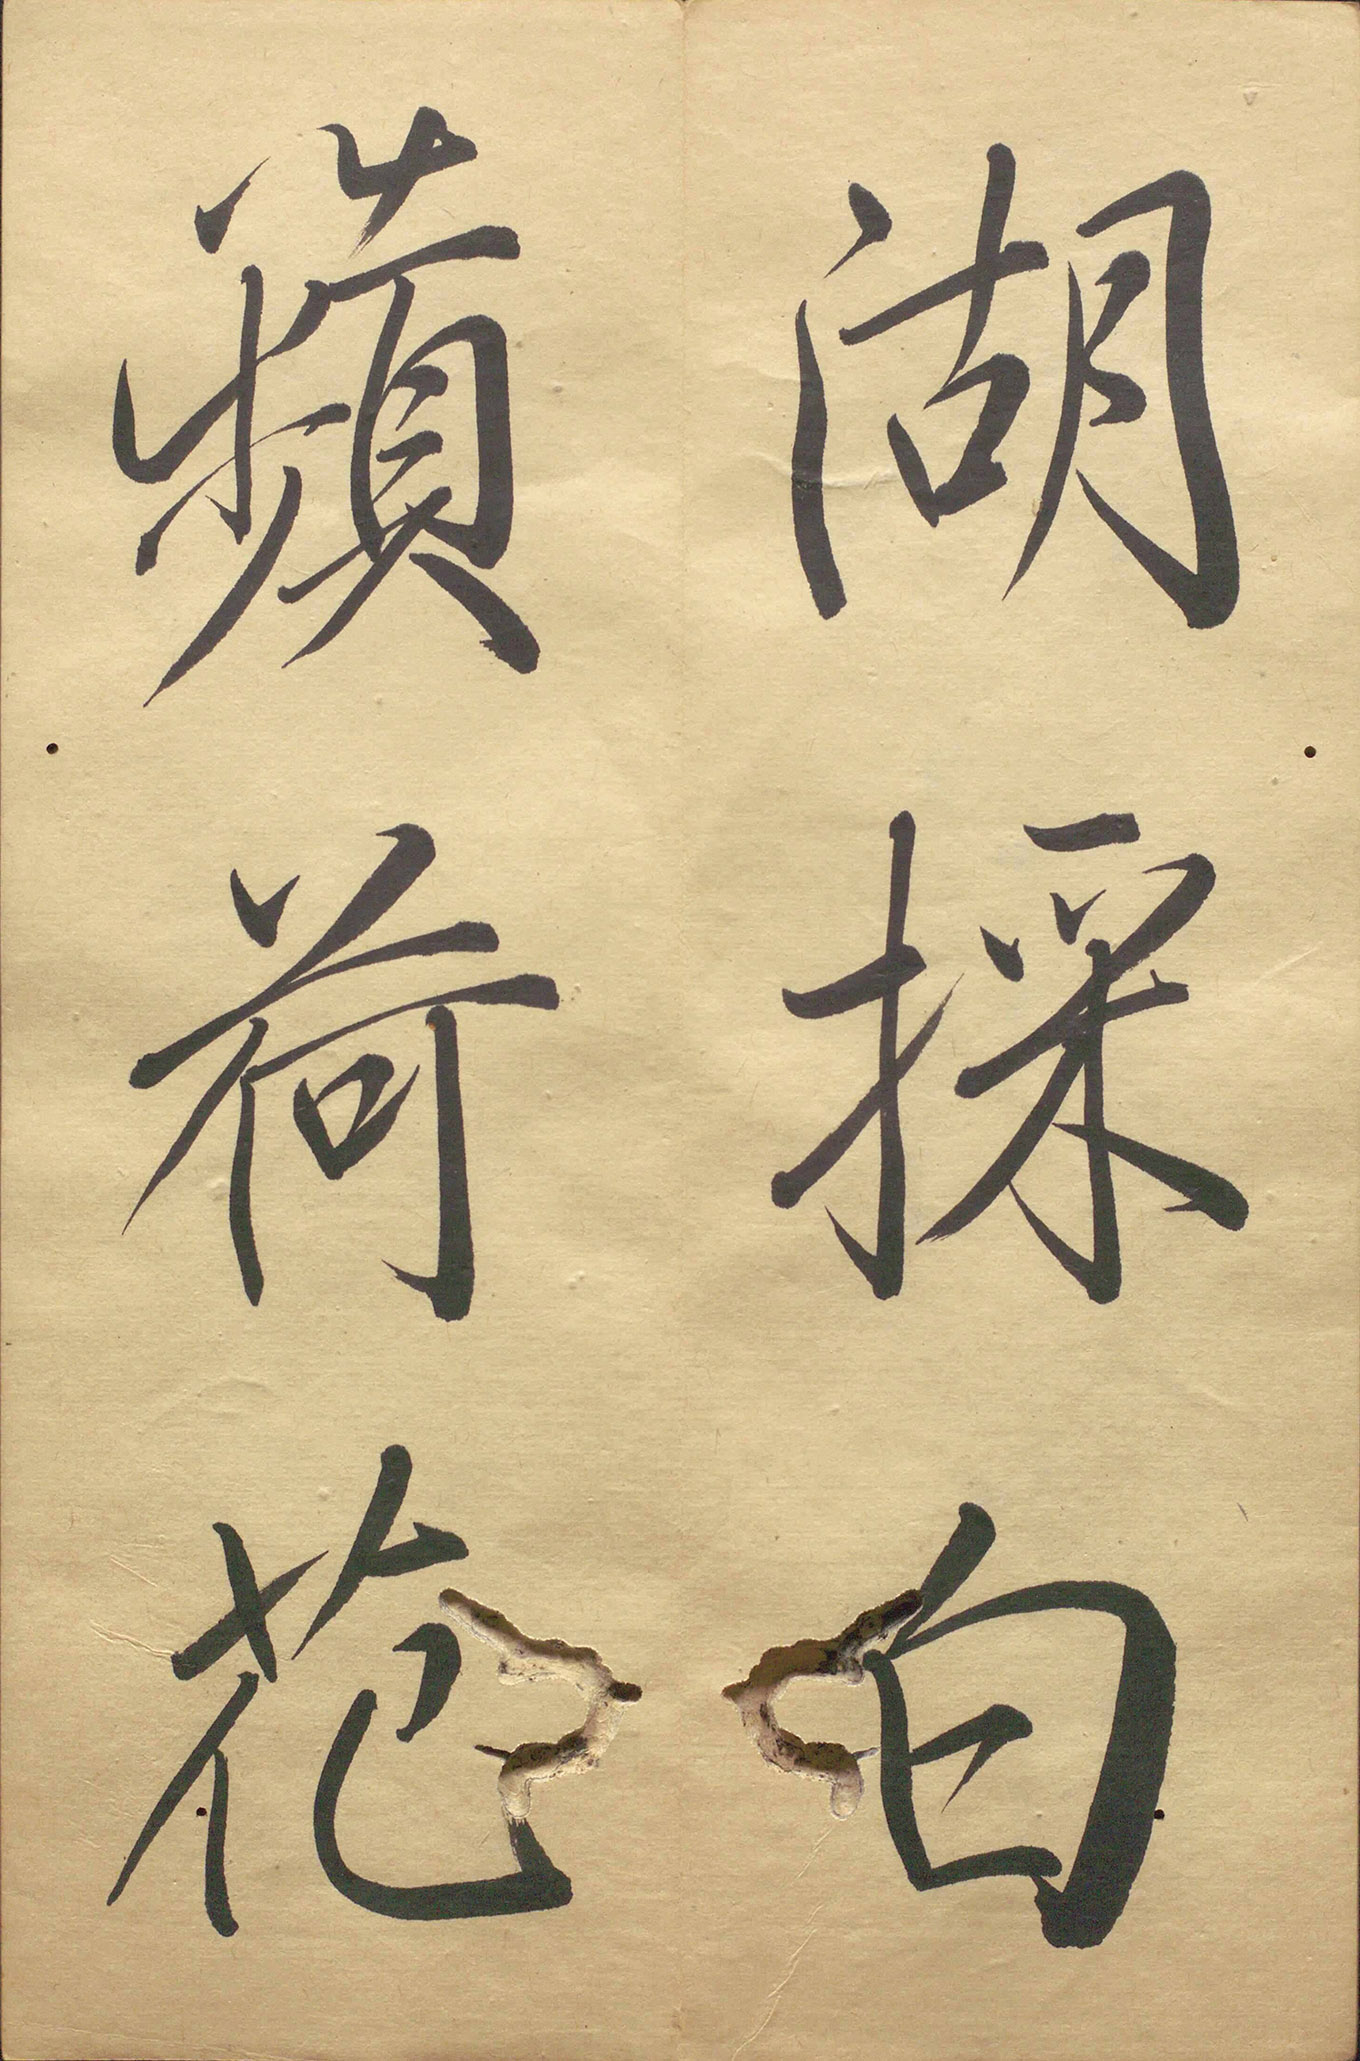 湖採白
蘋荷花